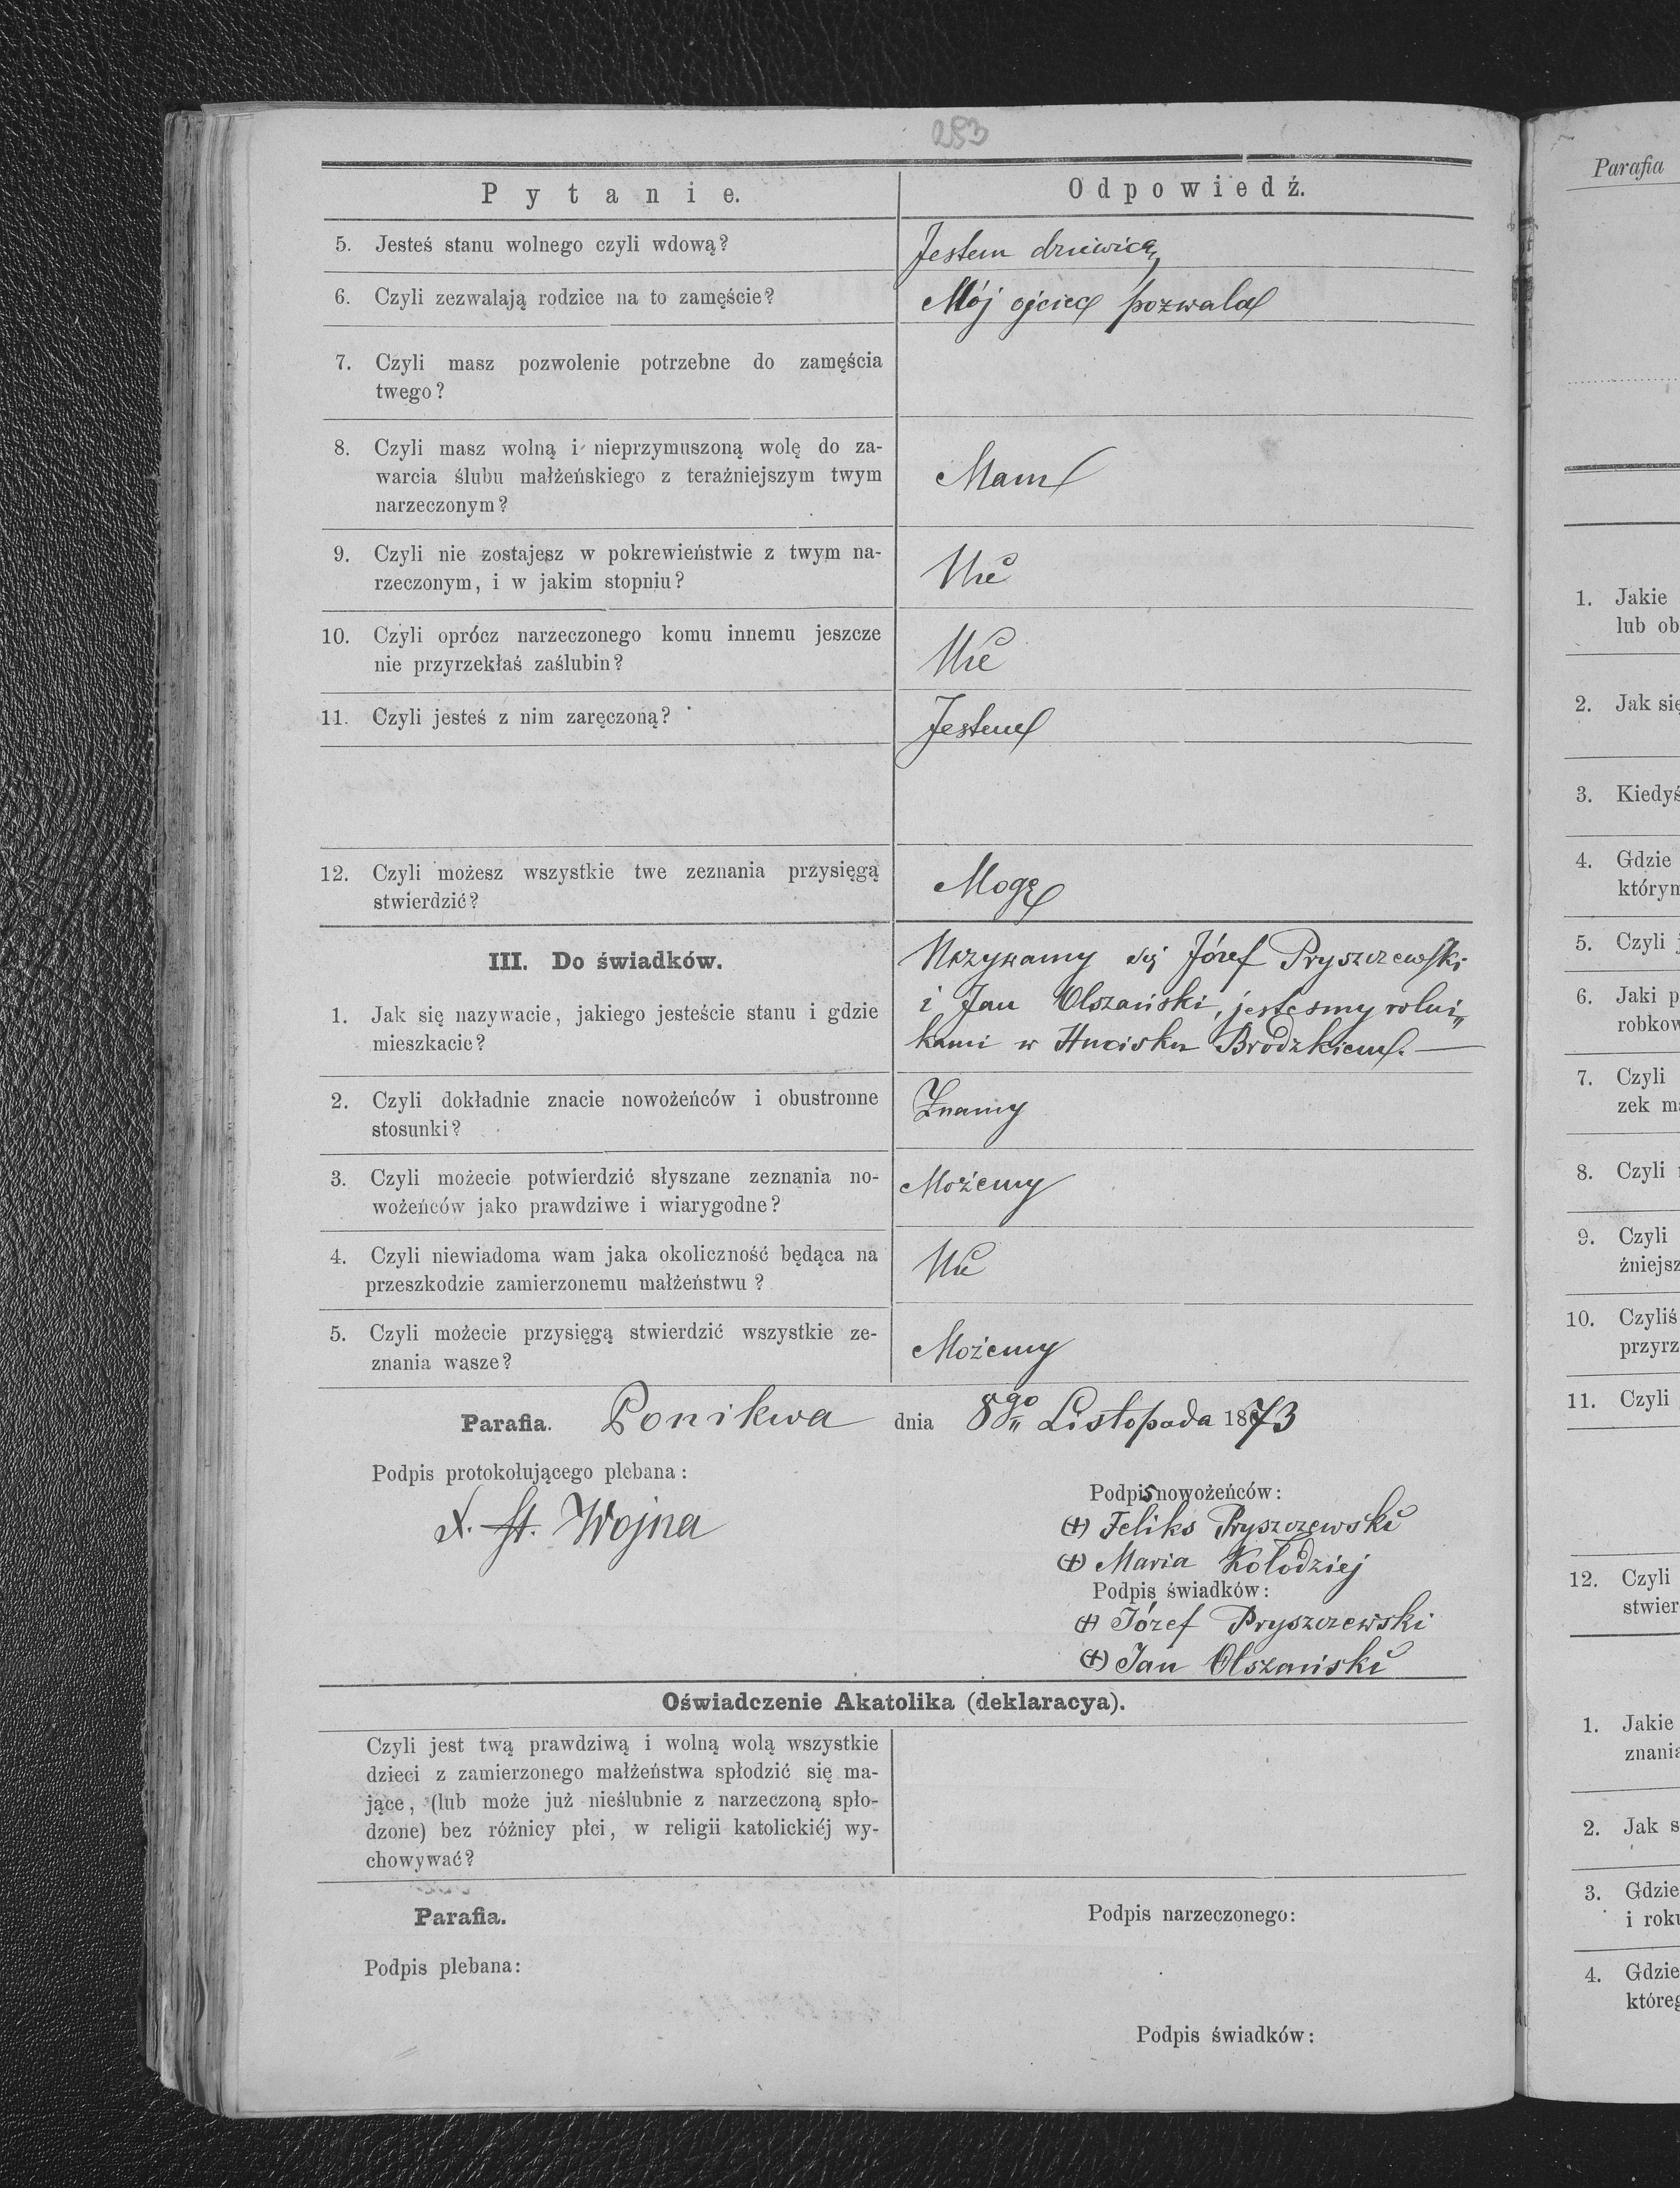 283
Pytanie. Odpowiedź.
5. Jesteś stanu wolnego czyli wdową? Jestem dziewicą
6. Czyli zezwalają rodzice na to zamęście? Mój ojciec pozwala
7. Czyli masz pozwolenie potrzebne do zamęścia
twego?
8. Czyli masz wolną i nieprzymuszoną wolę do za-
warcia ślubu małżeńskiego z teraźniejszym twym
narzeczonym?
Mam
9. Czyli nie zostajesz w pokrewieństwie z twym na-
rzeczonym, i w jakim stopniu?
Nie
10. Czyli oprócz narzeczonego komu innemu jeszcze
nie przyrzekłaś zaślubin?
Nie
11. Czyli jesteś z nim zaręczoną? Jestem
12. Czyli możesz wszystkie twe zeznania przysięgą
stwierdzić?
Mogę
III. Do świadków.
1. Jak się nazywacie, jakiego jesteście stanu i gdzie
mieszkacie?
Nazywamy się Józef Pryszczewski
i Jan Olszański, jestesmy rolni„
kami w Hucisku Brodzkiem. —
2. Czyli dokładnie znacie nowożeńców i obustronne
stosunki?
Znamy
3. Czyli możecie potwierdzić słyszane zeznania no-
wożeńców jako prawdziwe i wiarygodne?
Możemy
4. Czyli niewiadoma wam jaka okoliczność będąca na
przeszkodzie zamierzonemu małżeństwu?
Nie
5. Czyli możecie przysięgą stwierdzić wszystkie ze-
znania wasze?
Możemy
Parafia. Ponikwa dnia 8go„ Listopada 1873
Podpis protokołującego plebana:
X. St. Wojna
Podpis nowożeńców:
(+) Feliks Pryszczewski
(+) Maria Kołodziej
Podpis świadków:
(+) Józef Pryszczewski
(+) Jan Olszański
Oświadczenie Akatolika (deklaracya).
Czyli jest twą prawdziwą i wolną wolą wszystkie
dzieci z zamierzonego małżeństwa spłodzić się ma-
jące, (lub może już nieślubnie z narzeczoną spło-
dzone) bez różnicy płci, w religii katolickiéj wy-
chowywać?
Parafia. Podpis narzeczonego:
Podpis plebana:
Podpis świadków:
Parafia
1. Jakie
lub ob
2. Jak się
3. Kiedyś
4. Gdzie
którym
5. Czyli j
6. Jaki p
robkow
7. Czyli
zek ma
8. Czyli
9. Czyli
źniejsz
10. Czyliś
przyrz
11. Czyli
12. Czyli
stwier
1. Jakie
znania
2. Jak s
3. Gdzie
i roku
4. Gdzie
któreg